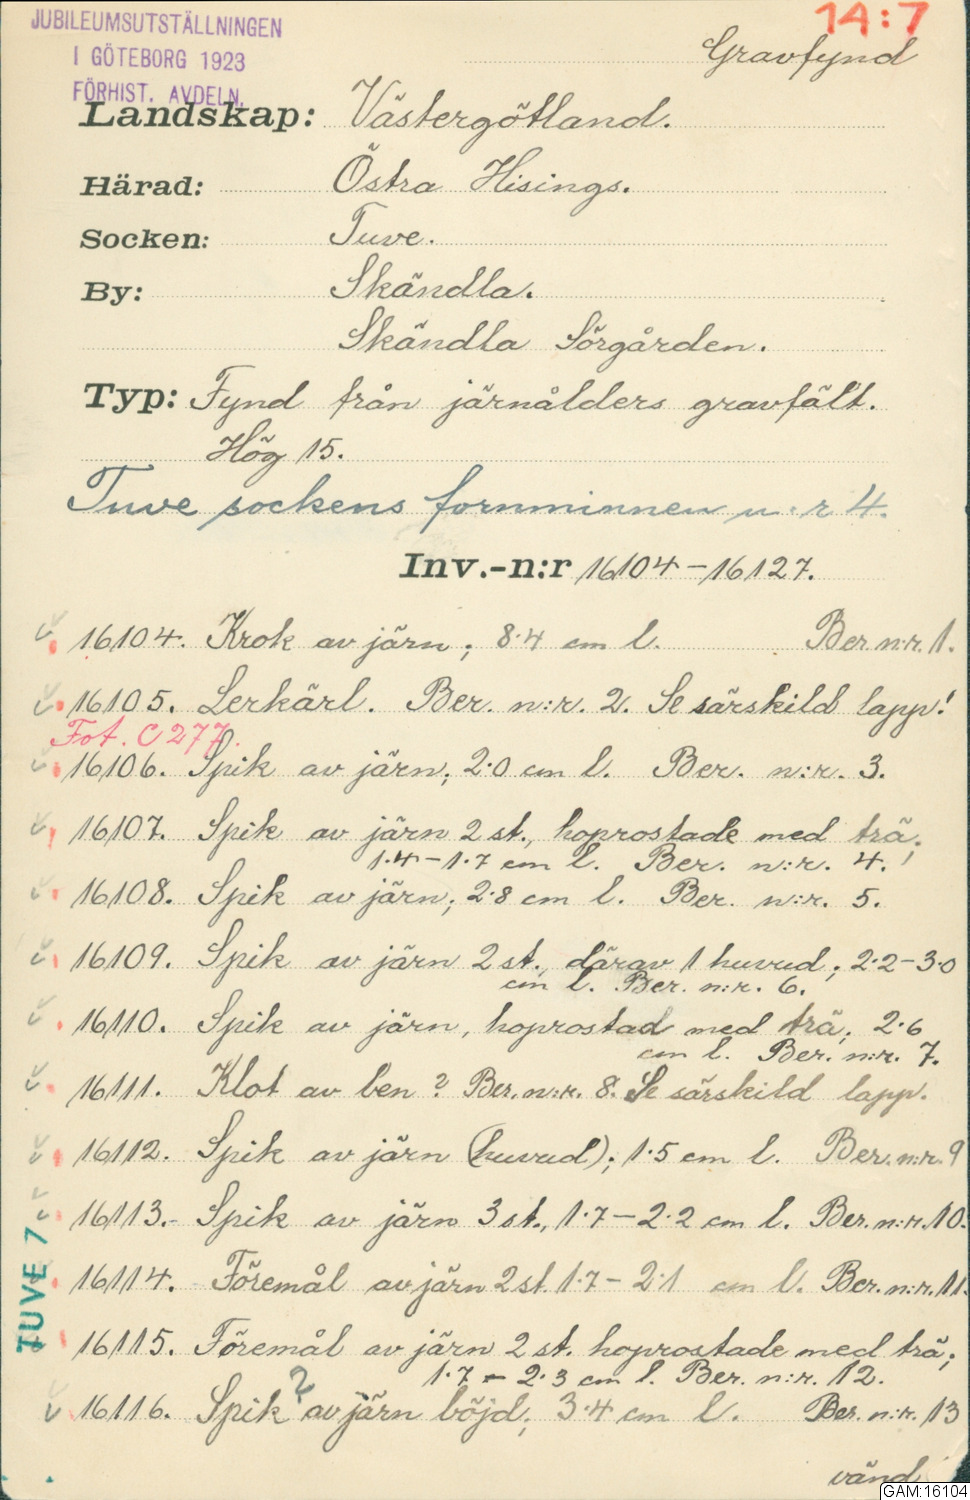 JUBILEUMSUTSTÄLLNINGEN
I GÖTEBORG 1923
FÖRHIST. AVDELN.
14:7
Gravfynd
Landskap: Västergötland.
Härad: Östra Hisings.
Socken: Tuve.
By: Skändla.
Skändla Sörgården.
Typ: Fynd från järnålders gravfält.
Hög 15.
Tuve sockens fornminnen n:r 4.
Inv.-n:r 16104-16127.
16104. Krok av järn; 8.4 cm l. Ber. n:r. 1.
16105. Lerkärl. Ber. n:r. 2. Se särskild lapp!
Fot. C 277.
16106. Spik av järn; 2.0 cm l. Ber. n:r. 3.
16107. Spik av järn 2 st., hoprostade med trä;
1.4-1.7 cm l. Ber. n:r. 4.
16108. Spik av järn; 2.8 cm l. Ber. n:r. 5.
16109. Spik av järn 2 st., därav 1 huvud; 2.2-3.0
cm l. Ber. n:r. 6.
16110. Spik av järn, hoprostad med trä; 2.6
cm l. Ber. n:r. 7.
16111. Klot av ben? Ber. n:r. 8. Se särskild lapp.
16112. Spik av järn (huvud); 1.5 cm l. Ber. n:r. 9
16113. Spik av järn 3 st., 1.7-2.2 cm l. Ber. n:r. 10.
16114. Föremål av järn 2 st. 1.7-2.1 cm l. Ber. n:r. 11.
16115. Föremål av järn 2 st. hoprostade med trä;
1.7-2.3 cm l. Ber. n:r. 12.
16116. Spik? av järn böjd; 3.4 cm l. Ber. n:r. 13
vänd
TUVE 7
GAM:16104